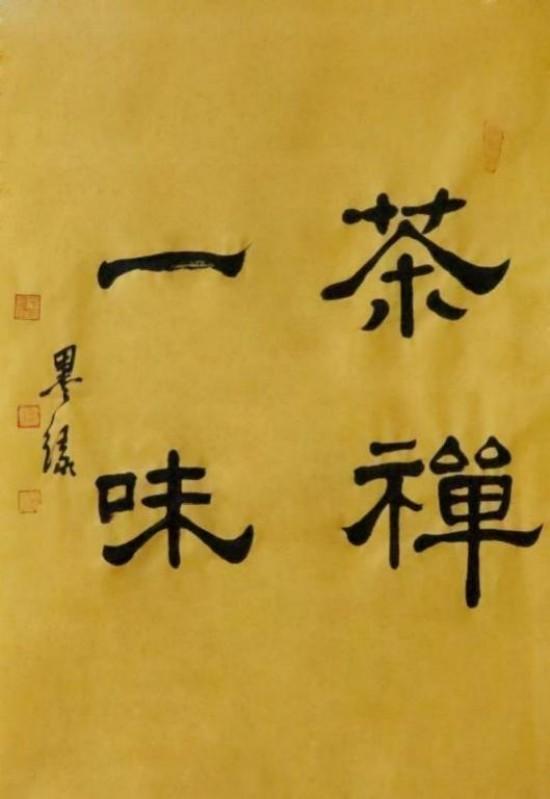 茶禪
一味
墨緣